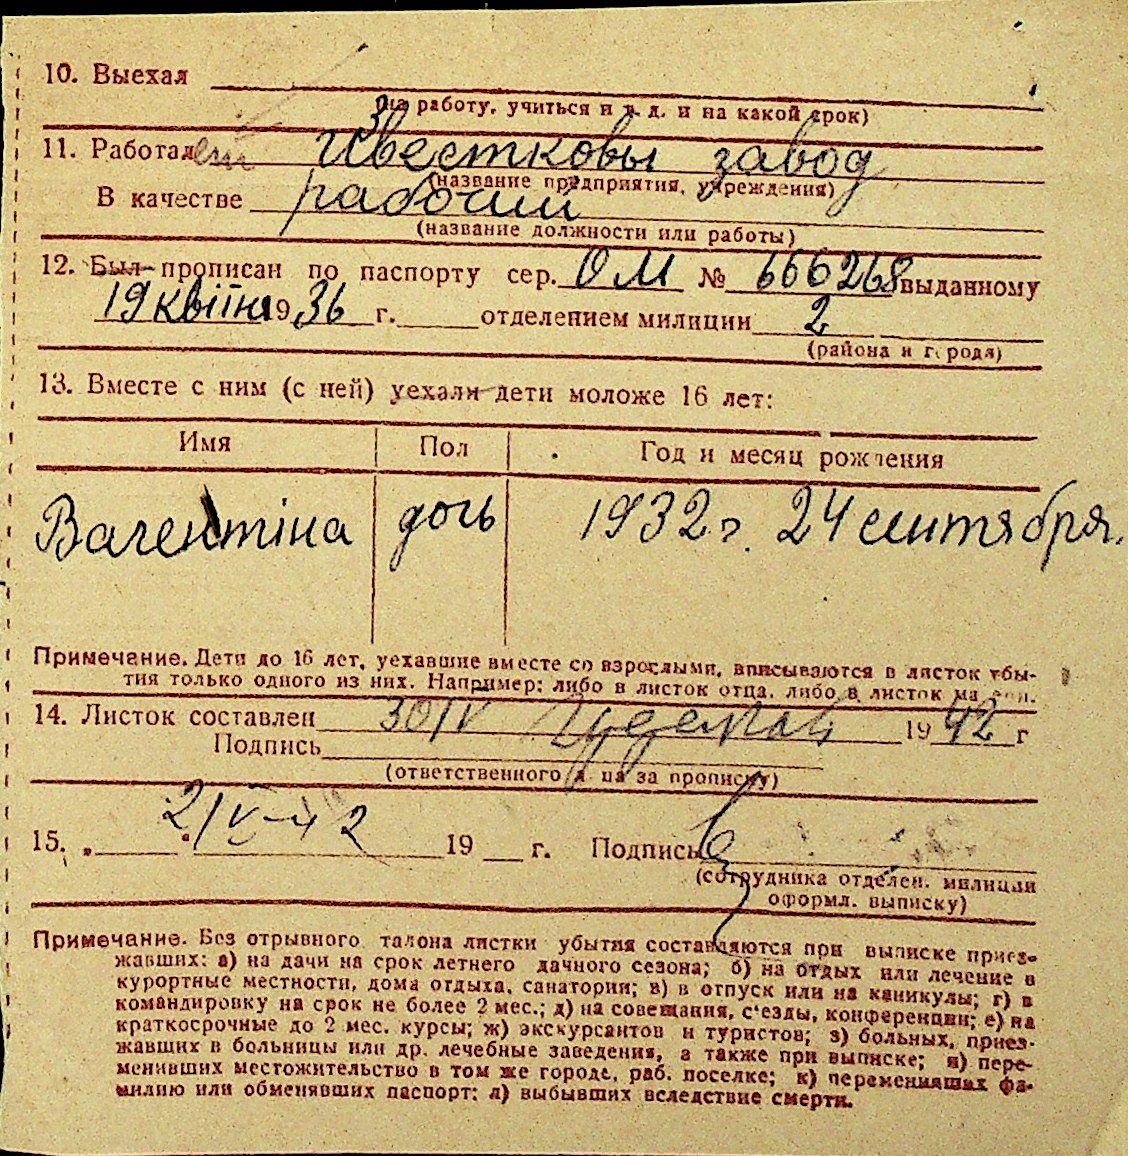 10. Выехал
(на работу, учиться и т. д. и на какой срок)
11. Работает Известковы завод
(название предприятия, учреждения)
В качестве рабочий
(название должности или работы)
12. Был прописан по паспорту сер. ОМ № 666268 выданному
19 квітня 1936 г. отделением милиции 2
(района и города)
13. Вместе с ним (с ней) уехали дети моложе 16 лет:
Имя Пол Год и месяц рождения
Валентіна дочь 1932 г. 24 сентября.
Примечание. Дети до 16 лет, уехавшие вместе со взрослыми, вписываются в листок убы-
тия только одного из них. Например: либо в листок отца, либо в листок матери.
14. Листок составлен 30/IV 1942 г
Подпись
(ответственного лица за прописку)
15. „ “ 2/V-42 19 г. Подпись
(сотрудника отделен. милиции
оформл. выписку)
Примечание. Без отрывного талона листки убытия составляются при выписке приез-
жавших: а) на дачи на срок летнего дачного сезона; б) на отдых или лечение в
курортные местности, дома отдыха, санатории; в) в отпуск или на каникулы; г) в
командировку на срок не более 2 мес.; д) на совещания, с'езды, конференции; е) на
краткосрочные до 2 мес. курсы; ж) экскурсантов и туристов; з) больных, приез-
жавших в больницы или др. лечебные заведения, а также при выписке; и) пере-
менивших местожительство в том же городе, раб. поселке; к) переменивших фа-
милию или обменявших паспорт; л) выбывших вследствие смерти.